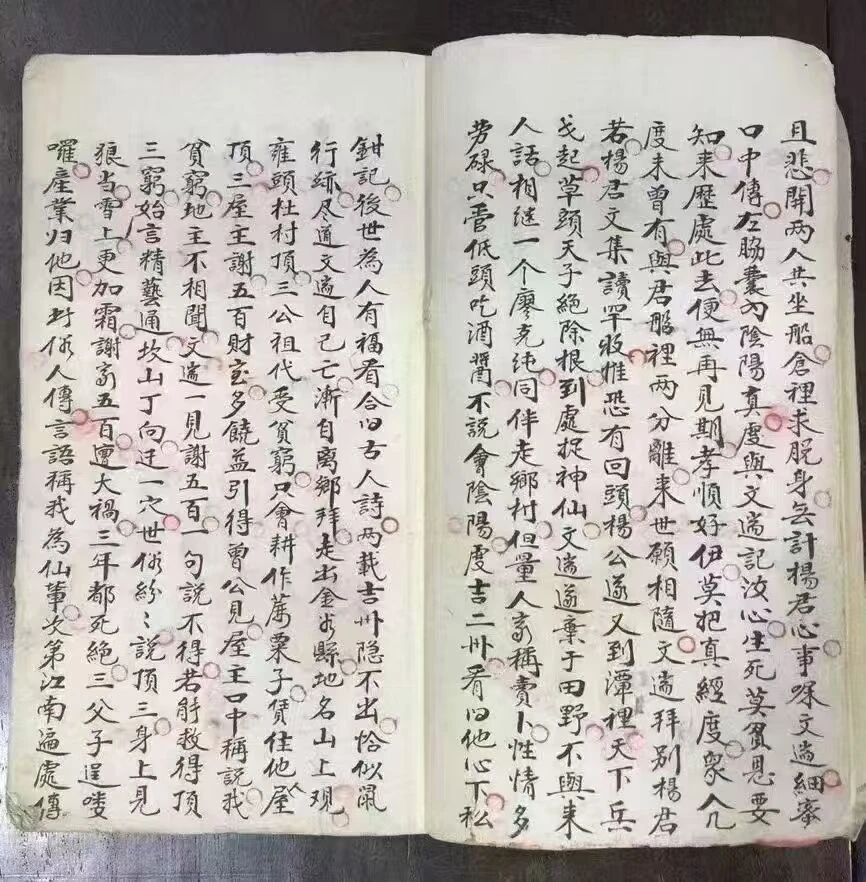 且悲開两人共坐船倉裡求脱身无計楊君心事㗲文遄細寡
口中傳左脇囊内陰陽真虔與文遄記汝心生死莫負恩要
知来歷處此去便無再見期孝順好伊莫把真經度衆人
度未曾有與君船裡两分離来世願相隨文遄拜别楊君
若楊君文集讀罕收惟恐有回頭楊公遂又到潭裡天下兵
戈起草頭天子絕除根到處捉神仙文遄遂棄于田野不與来
人話相継一个廖克纯同伴走鄉村但量人家稱賣卜性情多
劳碌只管低頭吃酒醬不說會陰陽虔吉二卅看旧他心下私
鉗記後世為人有福看合旧古人詩两載吉卅隐不出恰似鼠
行跡尽通文遄自己亡漸自離鄉拜走出金谷縣地名山上观
雍頭杜村頂三公祖代受貧窮只會耕作萬粟子賃住他屋
頂三屋主謝五百財宝多饒益引得曾公見屋主口中稱說我
貧窮地主不相聞文遄一見謝五百一句說不得若能救得頂
三窮始言精藝通坟山丁向迁一穴世俗紛〻說頂三身上見
狼当雪上更加霜謝家五百遭大禍三年都死絕三父子逞喽
囉產業归他因封俗人傳言語稱我為仙輩次第江南遍處傳